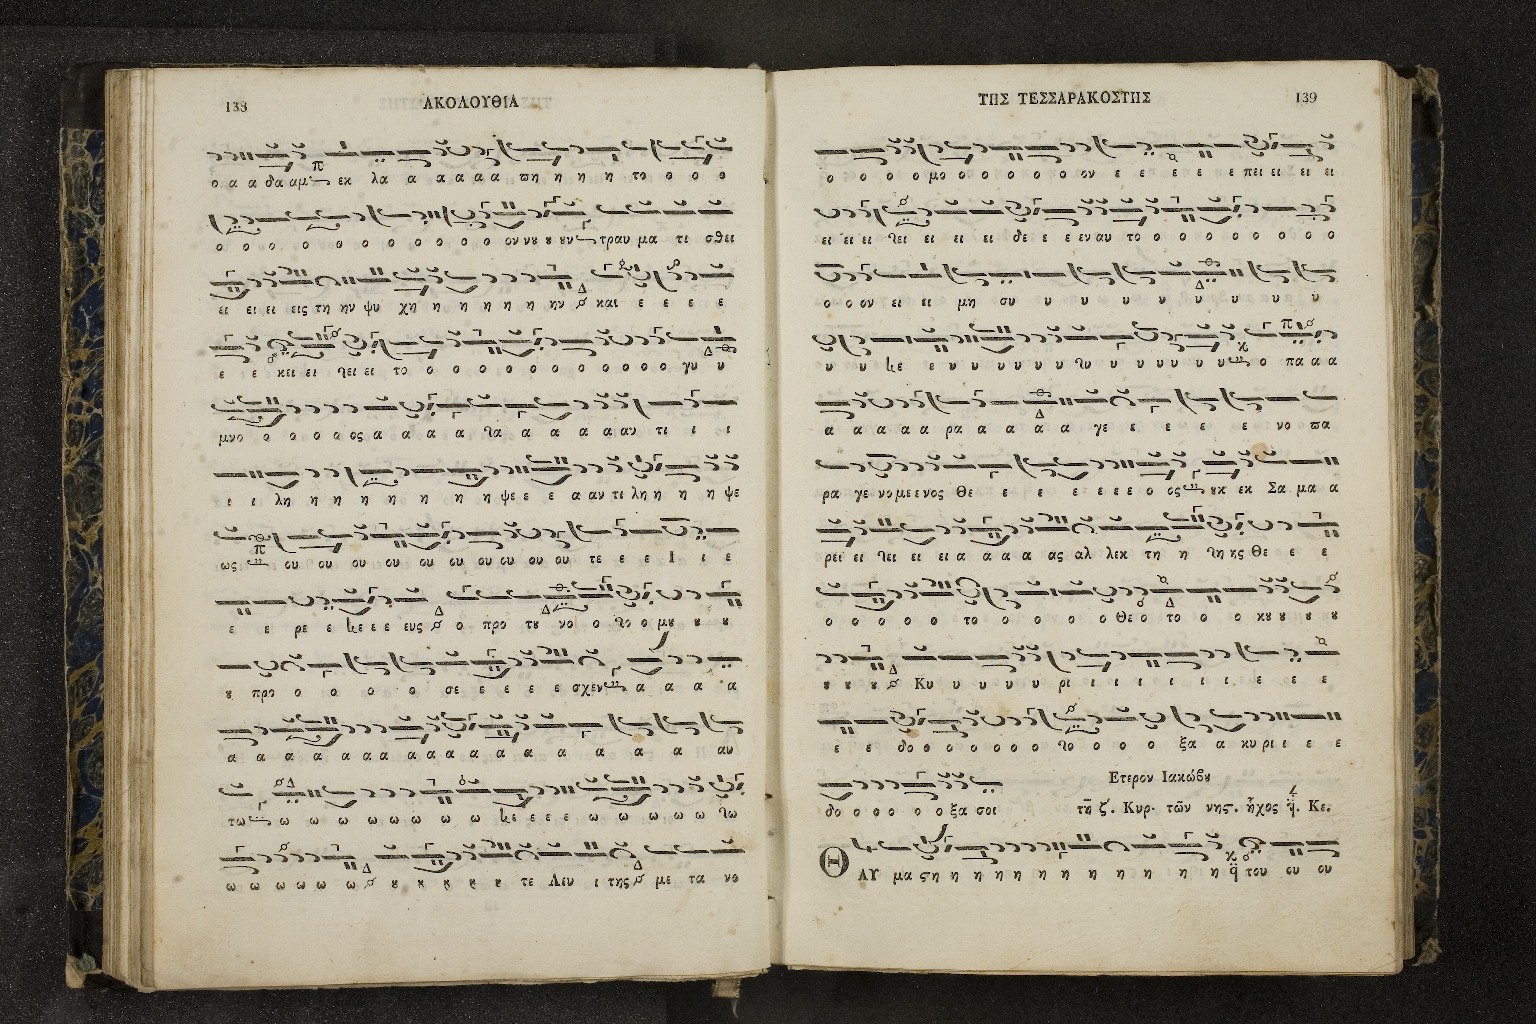 138
ΑΚΟΛΟΥΘΙΑ
ο α α δα αμ εκ λα α α α α α ϖη η η η το ο ο ο
ο ο νο ο ο ο ο ο ο ο ο ο ον νȣ ȣ ȣν τραυ μα τι σθει
ει ει ει εις τη ην ψυ χη η η η η η η ην και ε ε ε ε
ε ε κει ει γει ει το ο ο ο ο ο ο ο ο ο ο ο γυ υ
μνο ο ο ο ο ος α α α α γα α α α α αν τι ι ι
ι ι λη η η η η η η η η ψε ε ε α αν τι λη η η η ψε
ως ου ου ου ου ου ου ου ου ου ου τε ε ε Ι ι ε
ε ε ρε ε κε ε ε ευς ο προ τȣ νο ο γο ο μȣ ȣ ȣ
ȣ προ ο ο ο ο σε ε ε ε ε σχεν α α α α
α α α α α α α α α α α α α α α α α αυ
τω ω ω ω ω ω ω ω κε ε ε ε ω ω ω ω ω γω
ω ω ω ω ω ω ȣ κ κ κ κ ȣ τε Λευ ι της με τα νο
ΤΗΣ ΤΕΣΣΑΡΑΚΟΣΤΗΣ
139
ο ο ο ο μο ο ο ο ο ο ον ε ε ε ε ε πει ει ει ει
ει ει ει γει ει ει ει δε ε ε εν αυ το ο ο ο ο ο ο ο ο
ο ο ον ει ει μη συ υ υ υ υ υ υ υ υ
υ υ κε ε υ υ υ υ υ γυ υ υ υ υ υ ο πα α α
α α α α α ρα α α α α γε ε ε ε ε νο ϖα
ρα γε νομε ενος Θε ε ε ε ε ε ε ε ο ος ȣκ εκ Σα μα α
ρει ει γει ει ει α α α α ας αλ λεκ τη η γη ης Θε ε ε
ο ο ο ο ο το ο ο ο ο Θε ο το ο ο κȣ ȣ ȣ ȣ
ȣ ȣ ȣ Κυ υ υ υ υ ρι ι ι ι ι ι ι ε ε ε
ε ε δο ο ο ο ο ο ο γο ο ο ο ξα α κυ ρι ε ε ε
δο ο ο ο ο ο ξα σοι
Ετερον Ιακώβȣ
τῇ ζ. Κυρ. τῶν νης. ἦχος ἢ. Κε.
Θ ΑΥ μα ϛη η η η η η η η η η η η η του ου ου